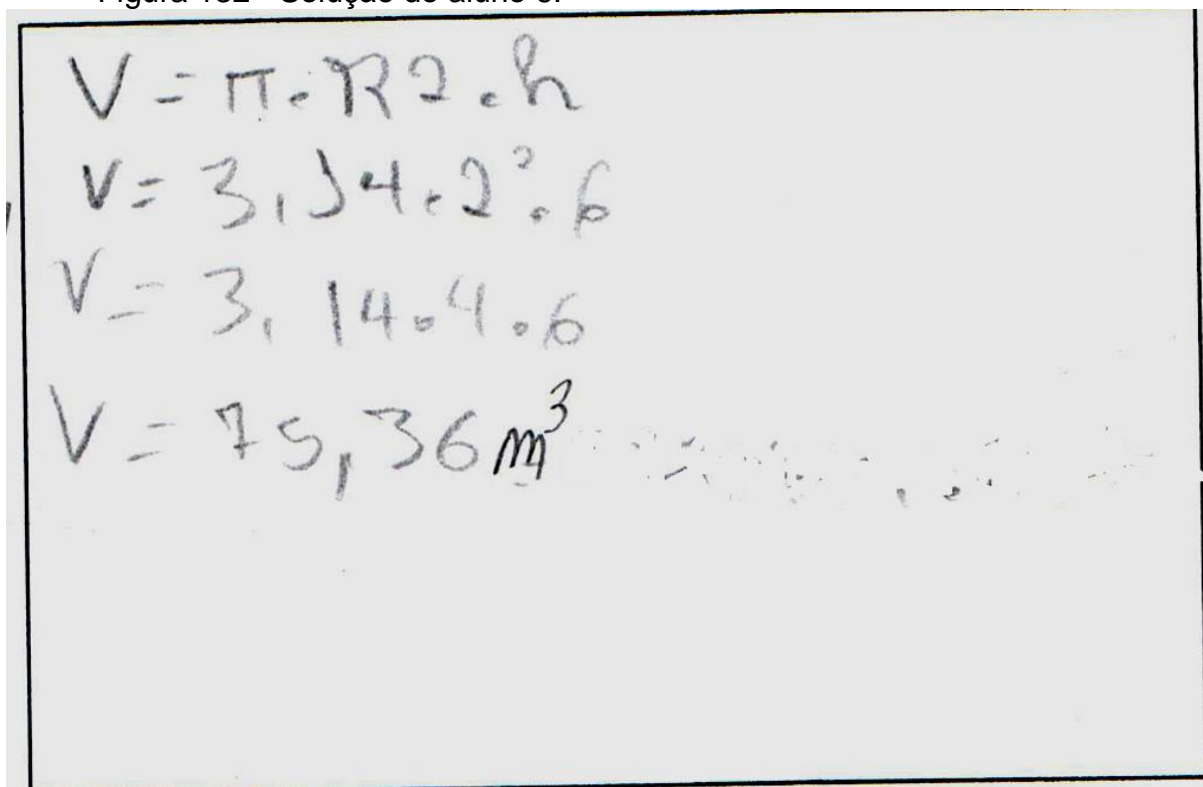 V = π . R2 . h
V = 3,14 . 2² . 6
V = 3,14 . 4 . 6
V = 75,36 m³